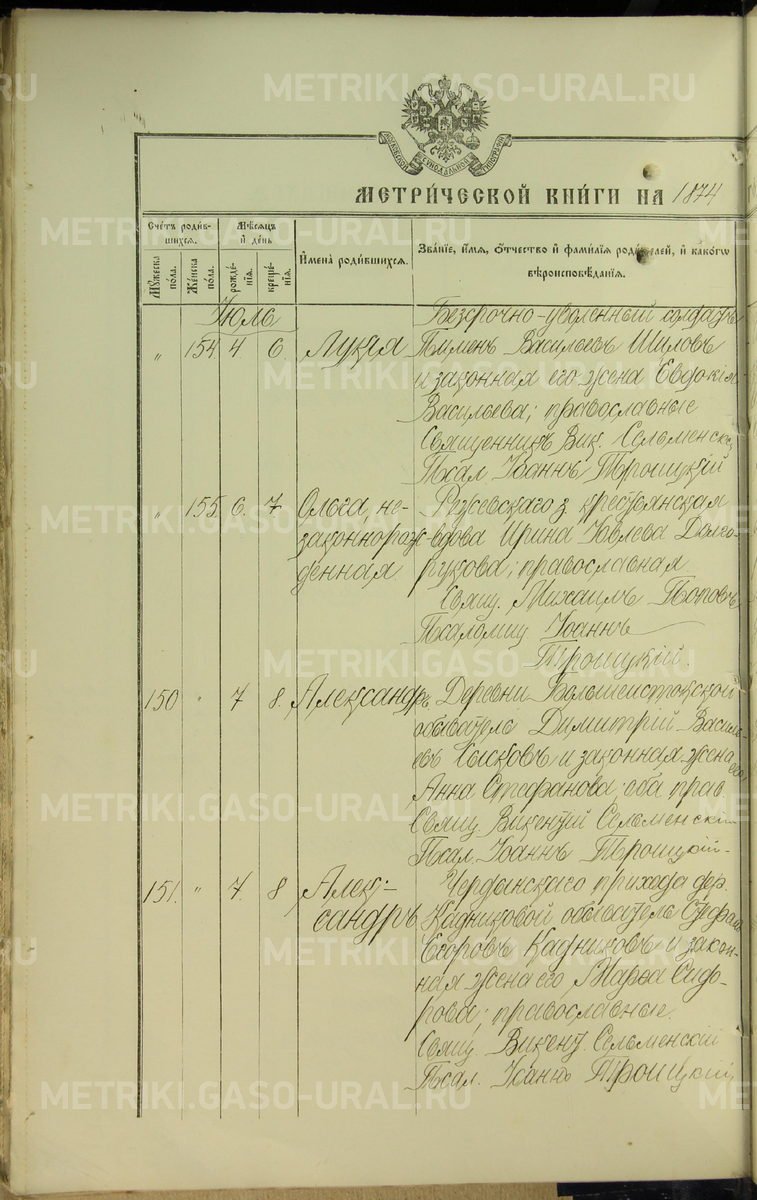 METRIKI.GASO-URAL.RU
МЕТРИ́ЧЕСКОЙ КНИ́ГИ НА 1874
Сче́тъ роди́вшихся.
Му́жеска по́ла.
Же́нска по́ла.
Мѣ́сяцъ и де́нь
рожде́нія.
креще́нія.
И҆мена̀ роди́вшихся.
Зва́ніе, и҆́мя, ѻ҆́тчество и҆ фами́лія роди́телей, и҆ како́гѡ вѣроисповѣ́данія.
Іюль
Безсрочно-уволенный солдатъ
" 154 4. 6 Лукія Пименъ Васильевъ Шиловъ
и законная его жена Евдокія
Васильева; православные
Священникъ Вик. Сельменскій
Псал. Іоаннъ Троицкій
" 155. 6. 7 Ольга, не- крестьянская
законнорож- вдова Ирина Іовлева Долго-
денная рукова; православная
Свящ. Михаилъ Поповъ
Псаломщ Іоаннъ
Троицкій.
150 " 7 8. Александръ Деревни Большеистокской
обыватель Димитрій Василь-
евъ и законная жена его,
Анна Стефанова, оба прав.
Свящ. Викентій Сельменскій
Псал. Іоаннъ Троицкій
151. " 7. 8 Алек- прихода дер.
сандръ Кадниковой обыватель Стефанъ
Егоровъ Кадниковъ и закон-
ная жена его Марья Сидо-
рова; православные
Свящ. Викент. Сельменскій
Псал. Іоаннъ Троицкій